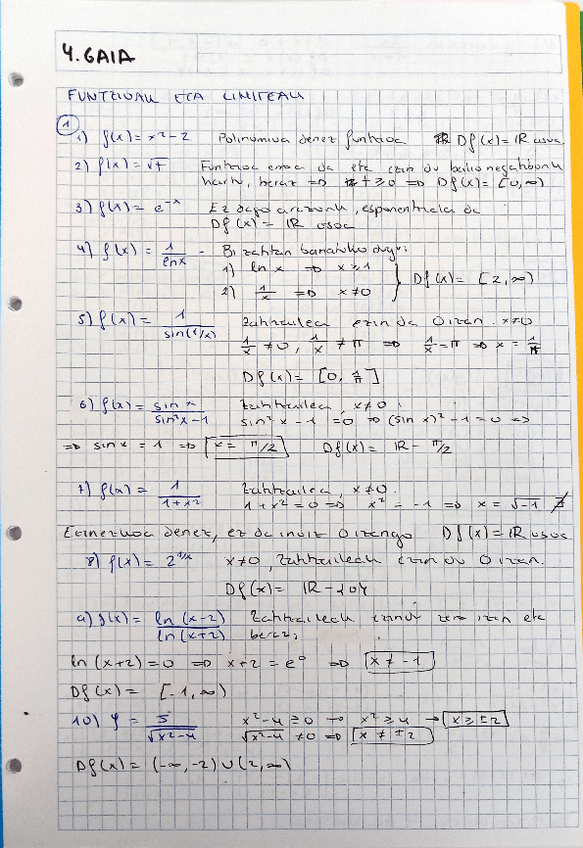 4. GAIA
FUNTZIOAK ETA LIMITEAK
1
1) f(x) = x² - 2 Polinomioa denez funtzioa Df(x) = ℝ osoa
2) f(x) = √x Funtzioa erroa da eta ezin du balio negatiborik
hartu, beraz => x ≥ 0 => Df(x) = [0, ∞)
3) f(x) = e^-x Ez dago arazorik, esponentziala da
Df(x) = ℝ osoa
4) f(x) = 1/ln x - Bi zatitan banatuko dugu:
1) ln x => x ≥ 1
2) 1/x => x ≠ 0 } Df(x) = [2, ∞)
5) f(x) = 1/sin(1/x) Zatitzailea ezin da 0 izan. x ≠ 0
1/x ≠ 0, 1/x ≠ π => 1/x = π => x = 1/π
Df(x) = [0, 1/π]
6) f(x) = sin x/sin²x - 1 Zatitzailea, x ≠ 0
sin²x - 1 = 0 => (sin x)² - 1 = 0 =>
=> sin x = 1 => x = π/2 Df(x) = ℝ - π/2
7) f(x) = 1/1 + x² Zatitzailea, x ≠ 0.
1 + x² = 0 => x² = -1 => x = √-1 ∄
Ezinezkoa denez, ez da inoiz 0 izango Df(x) = ℝ osoa
8) f(x) = 2^1/x x ≠ 0, Zatitzaileak ezin du 0 izan.
Df(x) = ℝ - {0}
9) f(x) = ln(x-2)/ln(x+2) Zatitzaileak ezin du zero izan eta
beraz;
ln(x+2) = 0 => x+2 = e⁰ => x ≠ -1
Df(x) = [-1, ∞)
10) y = 5/√x²-4 x²-4 ≥ 0 → x² ≥ 4 → x ≥ ±2
√x²-4 ≠ 0 => x ≠ ±2
Df(x) = (-∞, -2) ∪ (2, ∞)